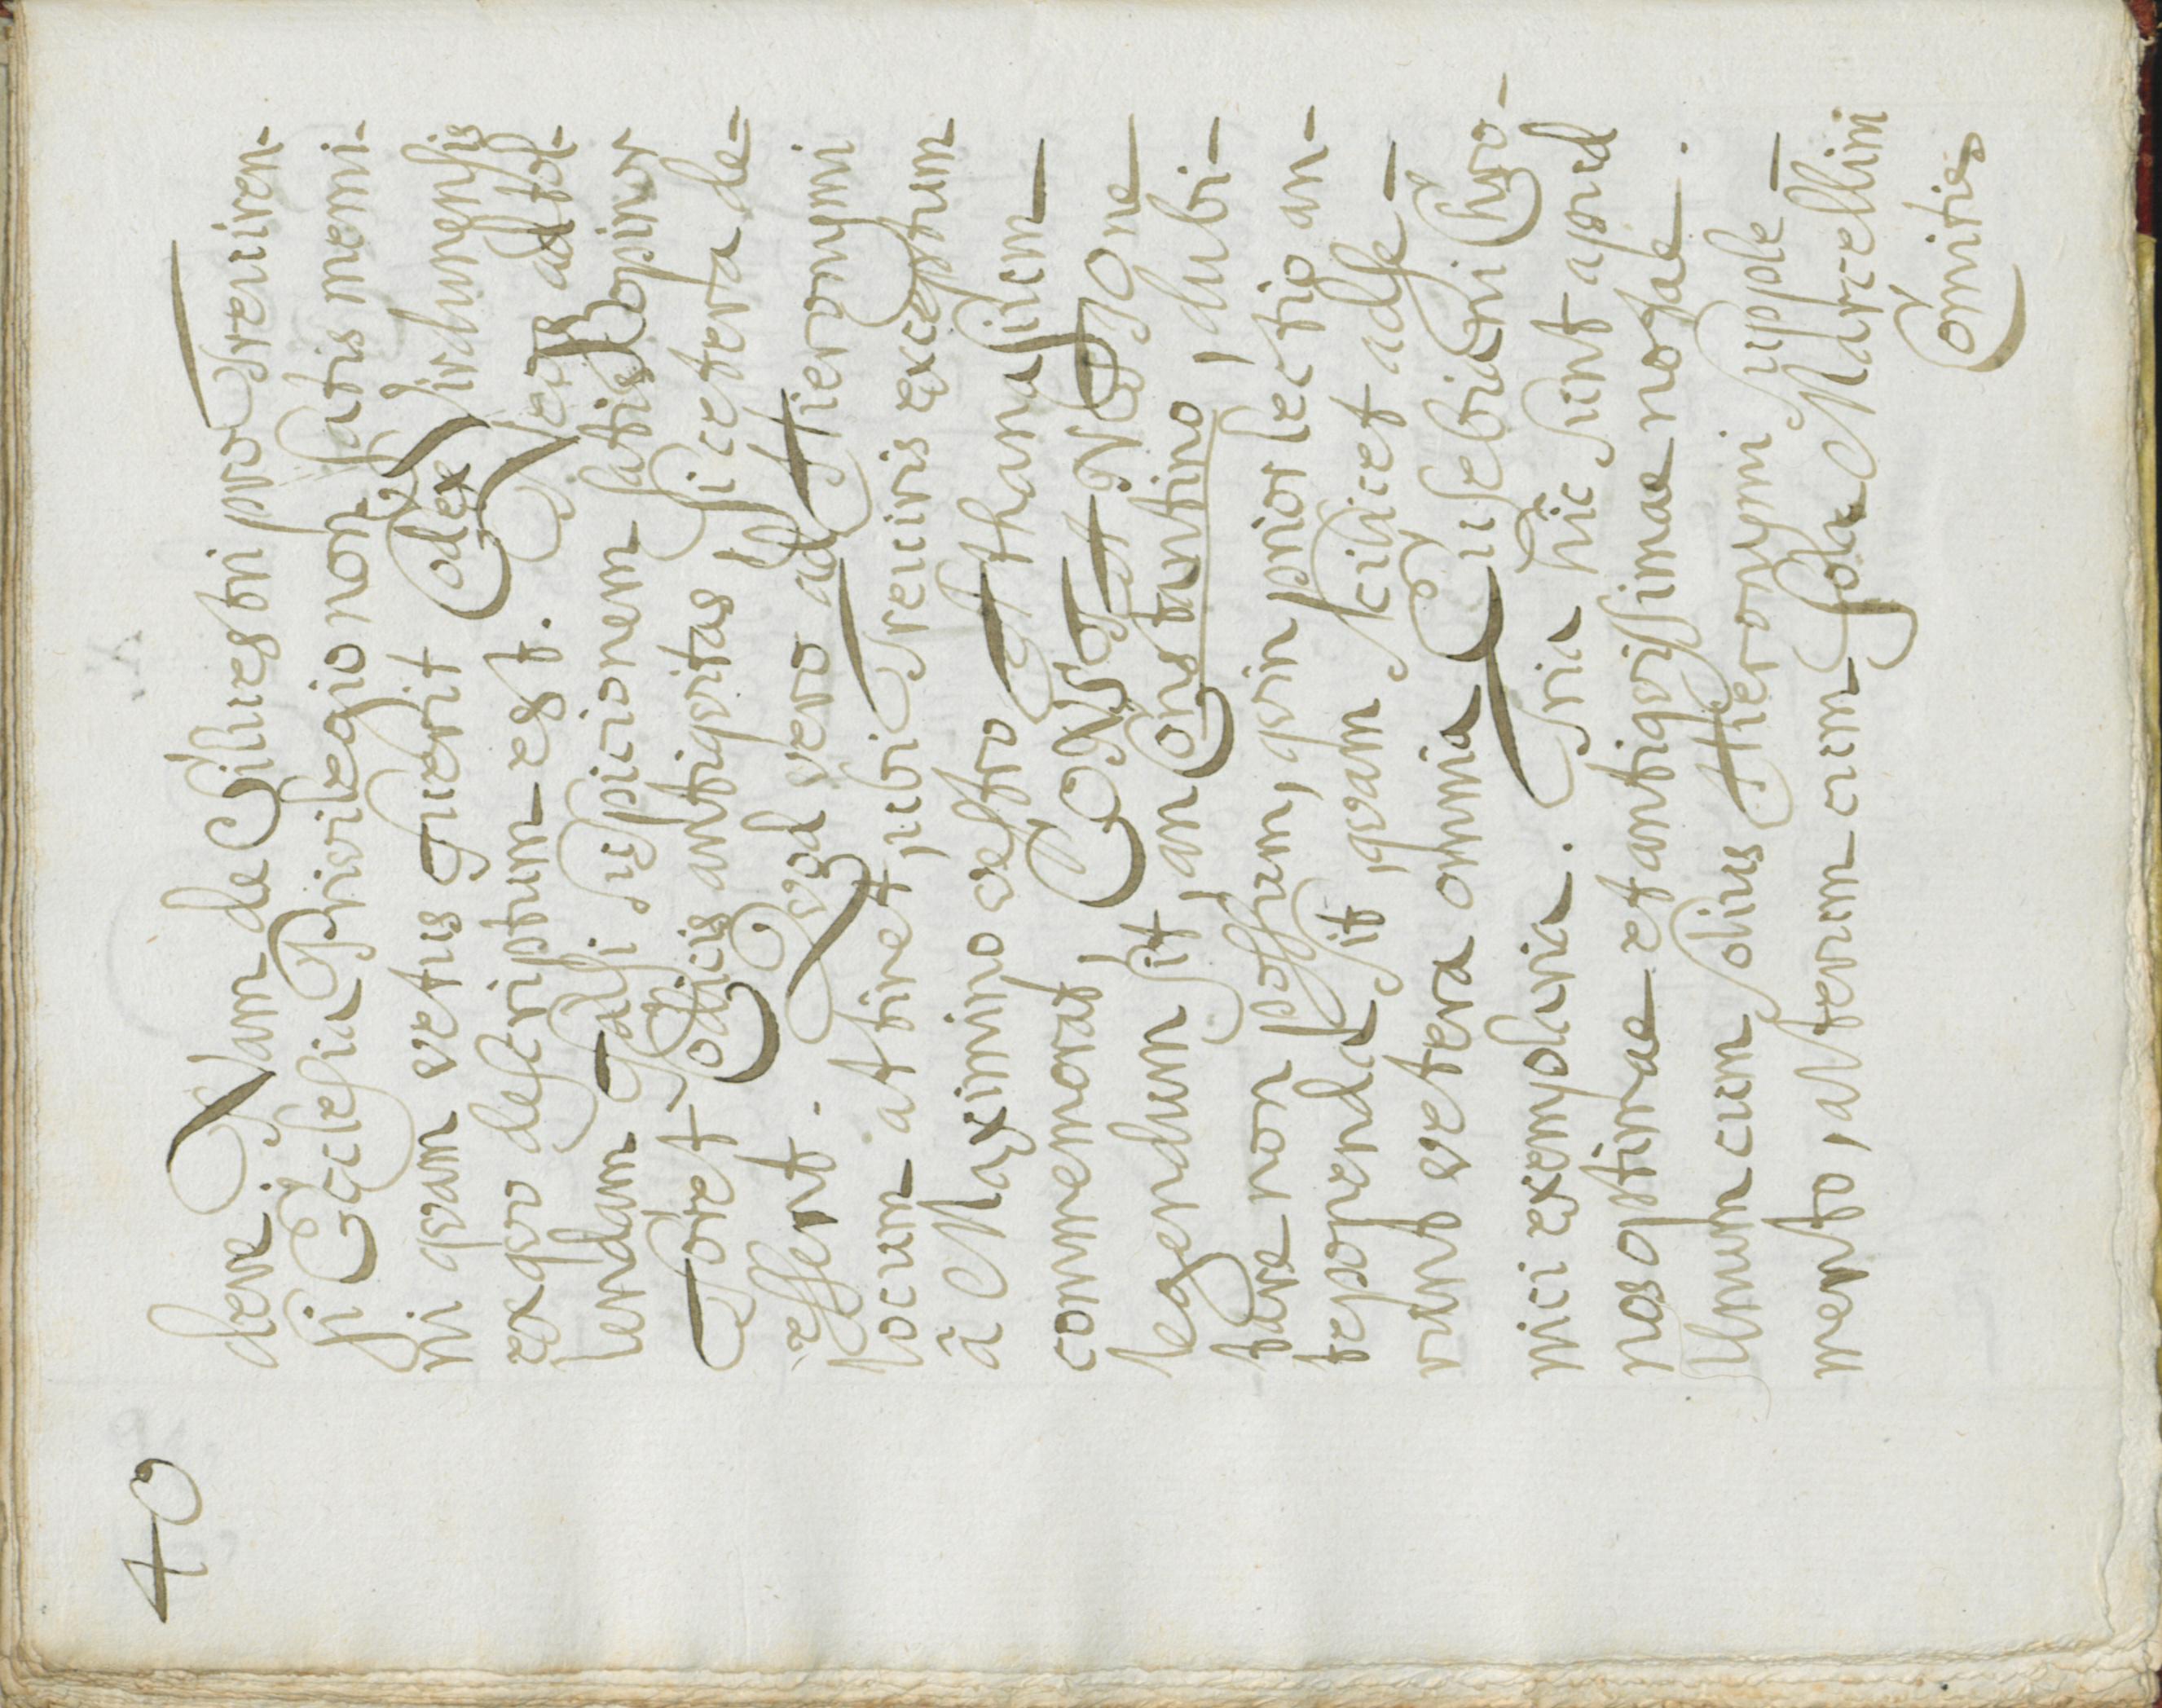 40
dere. Nam de Siluestri pro Treuiren-
si Ecclesia Privilegio non satis memi-
ni qvam vetus fuerit Codex Virdunensis
ex qvo descriptum est. Nec ad tol-
lendam falsi suspicionem satis, opinor
foret Codicis antiqvitas, si cetera de-
essent. Qvod vero ad Hieronymi
locum attinet, ubi Treuiris exceptum
à Maximino vestro Athanasium
commemorat, CONSTANtJNOne
legendum sit, an Constantino, dubi-
tare non possum, qvin prior lectio an-
teponenda sit, qvam scilicet adse-
runt vetera omnia Eusebiani Chro-
nici exemplaria. Tria hîc sunt apud
nos optimae et antiqvissimae notae.
Unum cum solius Hieronymi supple-
mento, alterum cum sola Marcellini
Comitis